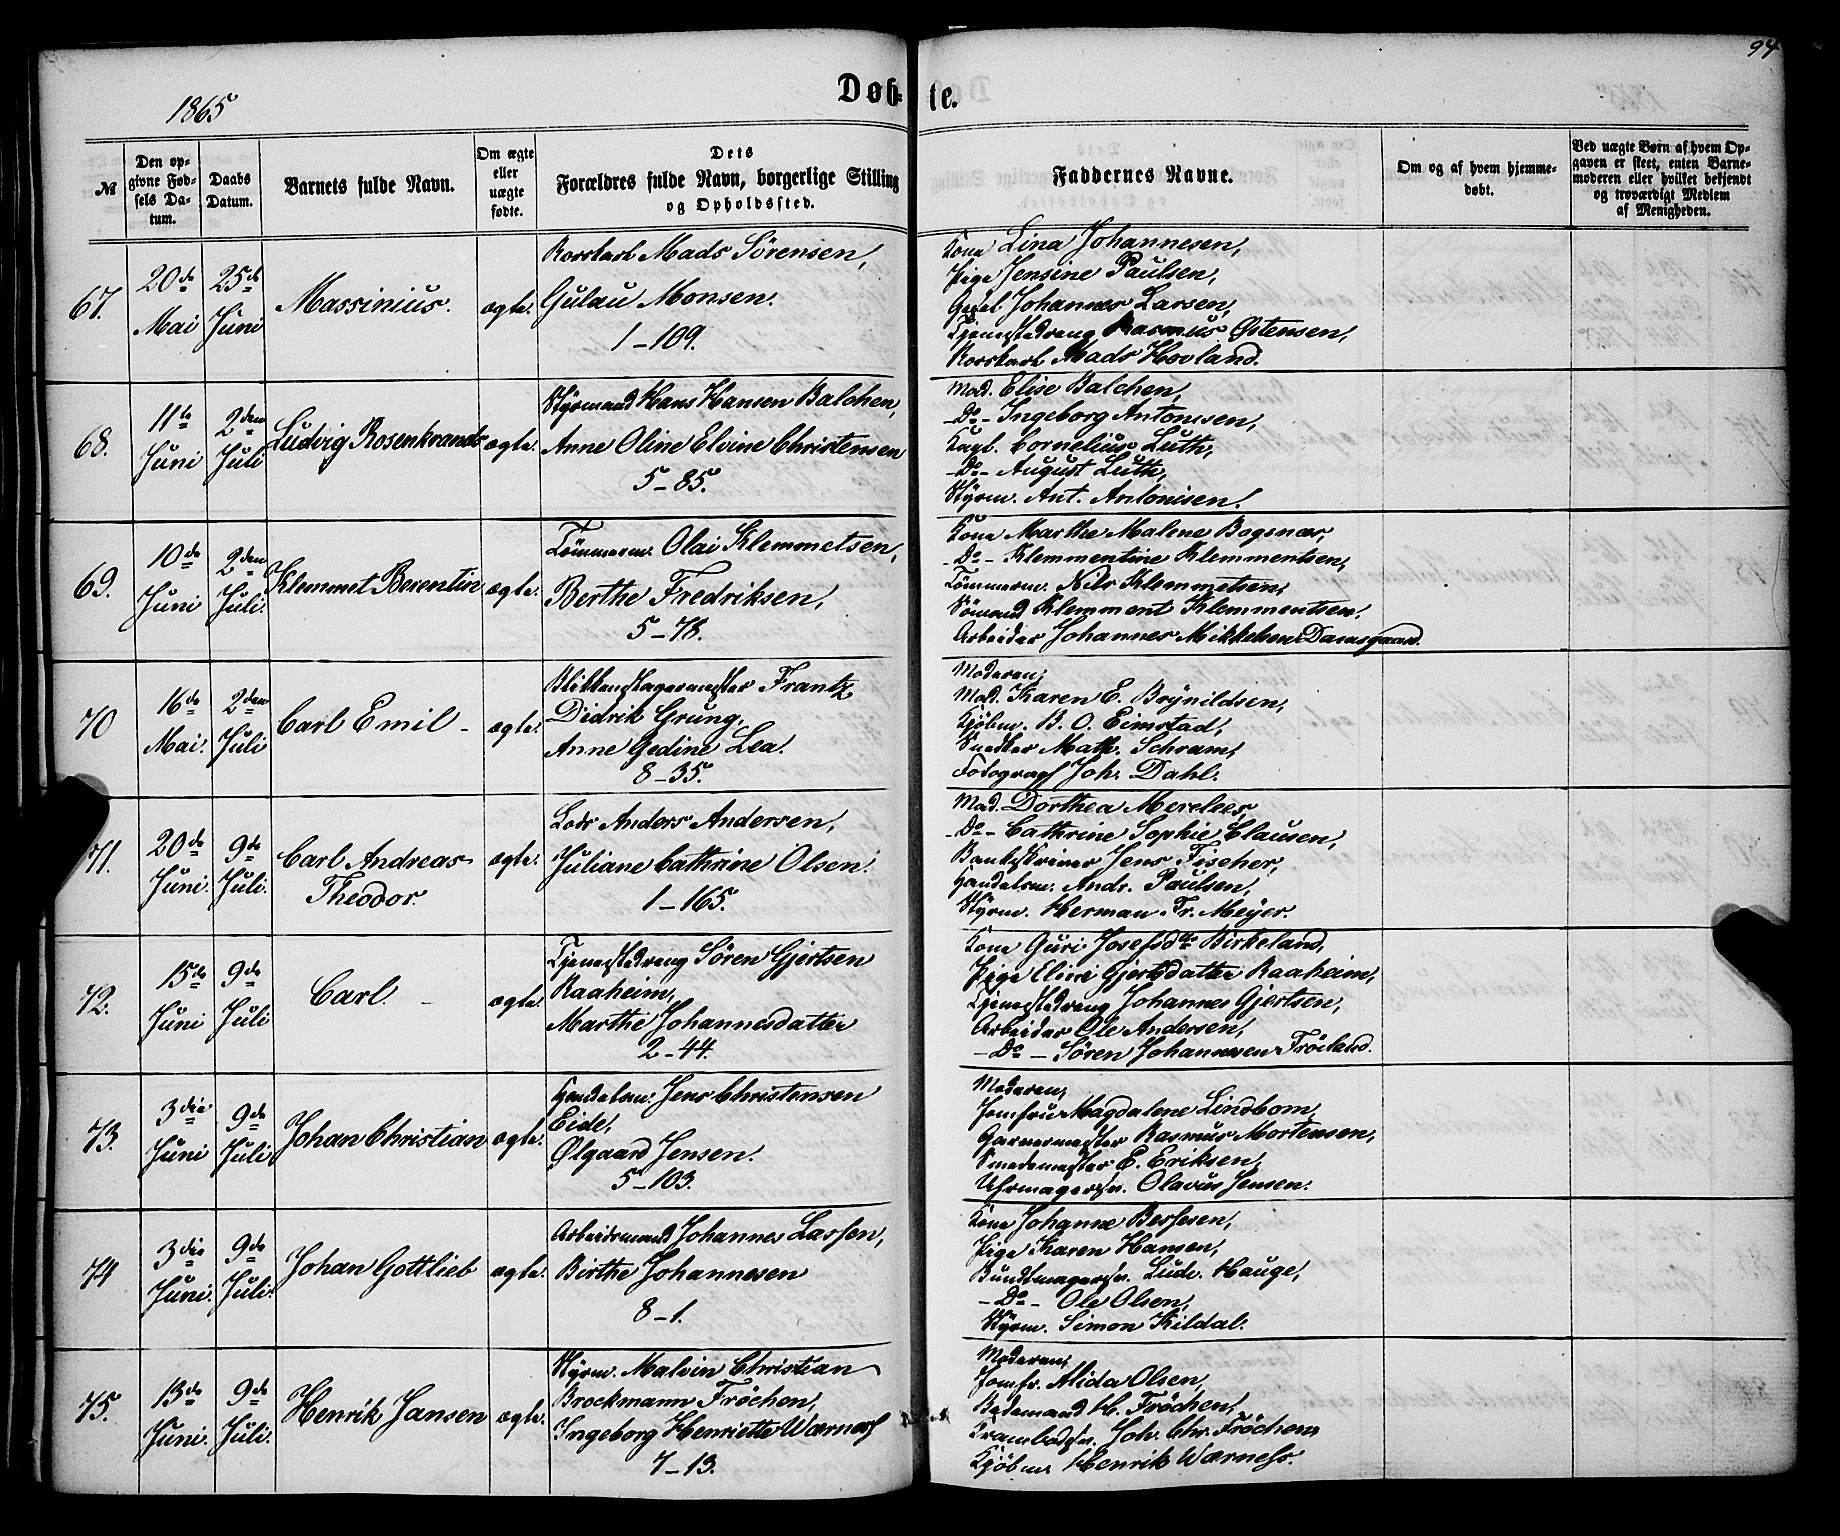 94
1865
Døb-te.
№
Den op-
givne Fød-
sels Da-
tum.
Daabs
Datum.
Barnets fulde Navn.
Om ægte
eller
uægte
fødte.
Dets
Forældres fulde Navn, borgerlige Stilling
og Opholdssted.
Faddernes Navne.
Om og af hvem hjemme-
døbt.
Ved uægte Børn af hvem Op-
gaven er skeet, enten Barne-
moderen eller hvilket bekjendt
og troværdigt Medlem
af Menigheden.
67.
20de
Mai
25de
Juni
Massinius.
ægte.
Rorskarl Mads Sørensen,
Gulau Monsen.
1-109.
Kone Lina Johannesen,
Pige Jensine Paulsen,
Gesel Johannes Larsen,
Tjenestedreng Rasmus Østensen,
Rorskarl Mads Hovland.
68.
11te
Juni
2den
Juli
Ludvig Rosenkrands
ægte.
Styrmand Hans Hansen Balchen,
Anne Oline Elvine Christensen
5-85.
Mad. Elise Balchen,
-Do- Ingeborg Antonisen,
Kagb. Cornelius Luth,
-Do- August Luth,
Styrm. Ant. Antonisen.
69.
10de
Juni
2den
Juli.
Klemmet Berentin
ægte.
Tømmerm. Olai Klemmetsen,
Berthe Fredriksen,
5-78.
Kone Marthe Malene Bagsnær,
-Do- Klemmentine Klemmentsen,
Tømmerm. Nils Klemmetsen,
Sømand Klemment Klemmentsen,
Arbeider Johannes Mikkelsen Damsgaard.
70
16de
Mai.
2den
Juli
Carl Emil -
ægte.
Blikkenslagermester Frantz
Didrik Grung,
Anne Gedine Lea.
8-35.
Moderen,
Mad. Karen E. Brynildsen,
Kjøbm. B. O. Eimstad,
Snedker Math. Schram,
Fotograf Joh. Dahl.
71.
20de
Juni.
9de
Juli.
Carl Andreas
Theodor.
ægte.
Lods Anders Andersen,
Juliane Cathrine Olsen.
1-165.
Mad. Dorthea Merelees,
-Do- Cathrine Sophie Clausen,
Bankskriver Jens Fischer,
Handelsm. Andr. Paulsen,
Styrm. Herman Fr. Meyer.
72.
15de
Juni
9de
Juli
Carl. -
ægte.
Tjenestedreng Søren Gjertsen
Raaheim,
Marthe Johannesdatter
2-44.
Kone Guri Josefsdtr Birkeland,
Pige Eline Gjertsdatter Raaheim,
Tjenestedreng Johannes Gjertsen,
Arbeider Ole Andersen,
-Do- Søren Johannesen Frøiland.
73.
3die
Juni
9de
Juli
Johan Christian
ægte.
Handelsm. Jens Christensen
Eide,
Ølgaard Jensen.
5-103.
Moderen,
Jomfru Magdalene Lindbom,
Garvermester Rasmus Mortensen,
Smedemester E. Eriksen,
Uhrmagersv. Olavus Jensen.
74
3die
Juni.
9de
Juli.
Johan Gottlieb
ægte.
Arbeidsmand Johannes Lassen,
Birthe Johannesen
8-1.
Kone Johanne Bessesen,
Pige Karen Hansen,
Bundtmagersv. Ludv. Hauge,
-Do- Ole Olsen,
Styrm. Simon Kildal.
75.
13de
Juni.
9de
Juli.
Henrik Jansen
ægte.
Styrm. Malvin Christian
Brockmann Frøchen,
Ingeborg Henriette Wærness
7-13.
Moderen,
Jomfr. Alida Olsen,
Bedemand H. Frøchen,
Krambodsv. Joh. Chr. Frøchen,
Kjøbm. Henrik Wærness.